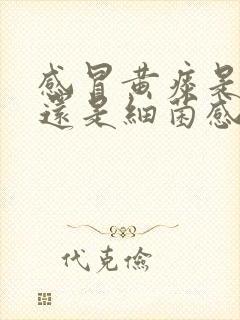 感冒黄痰是
还是細菌感
代克儉